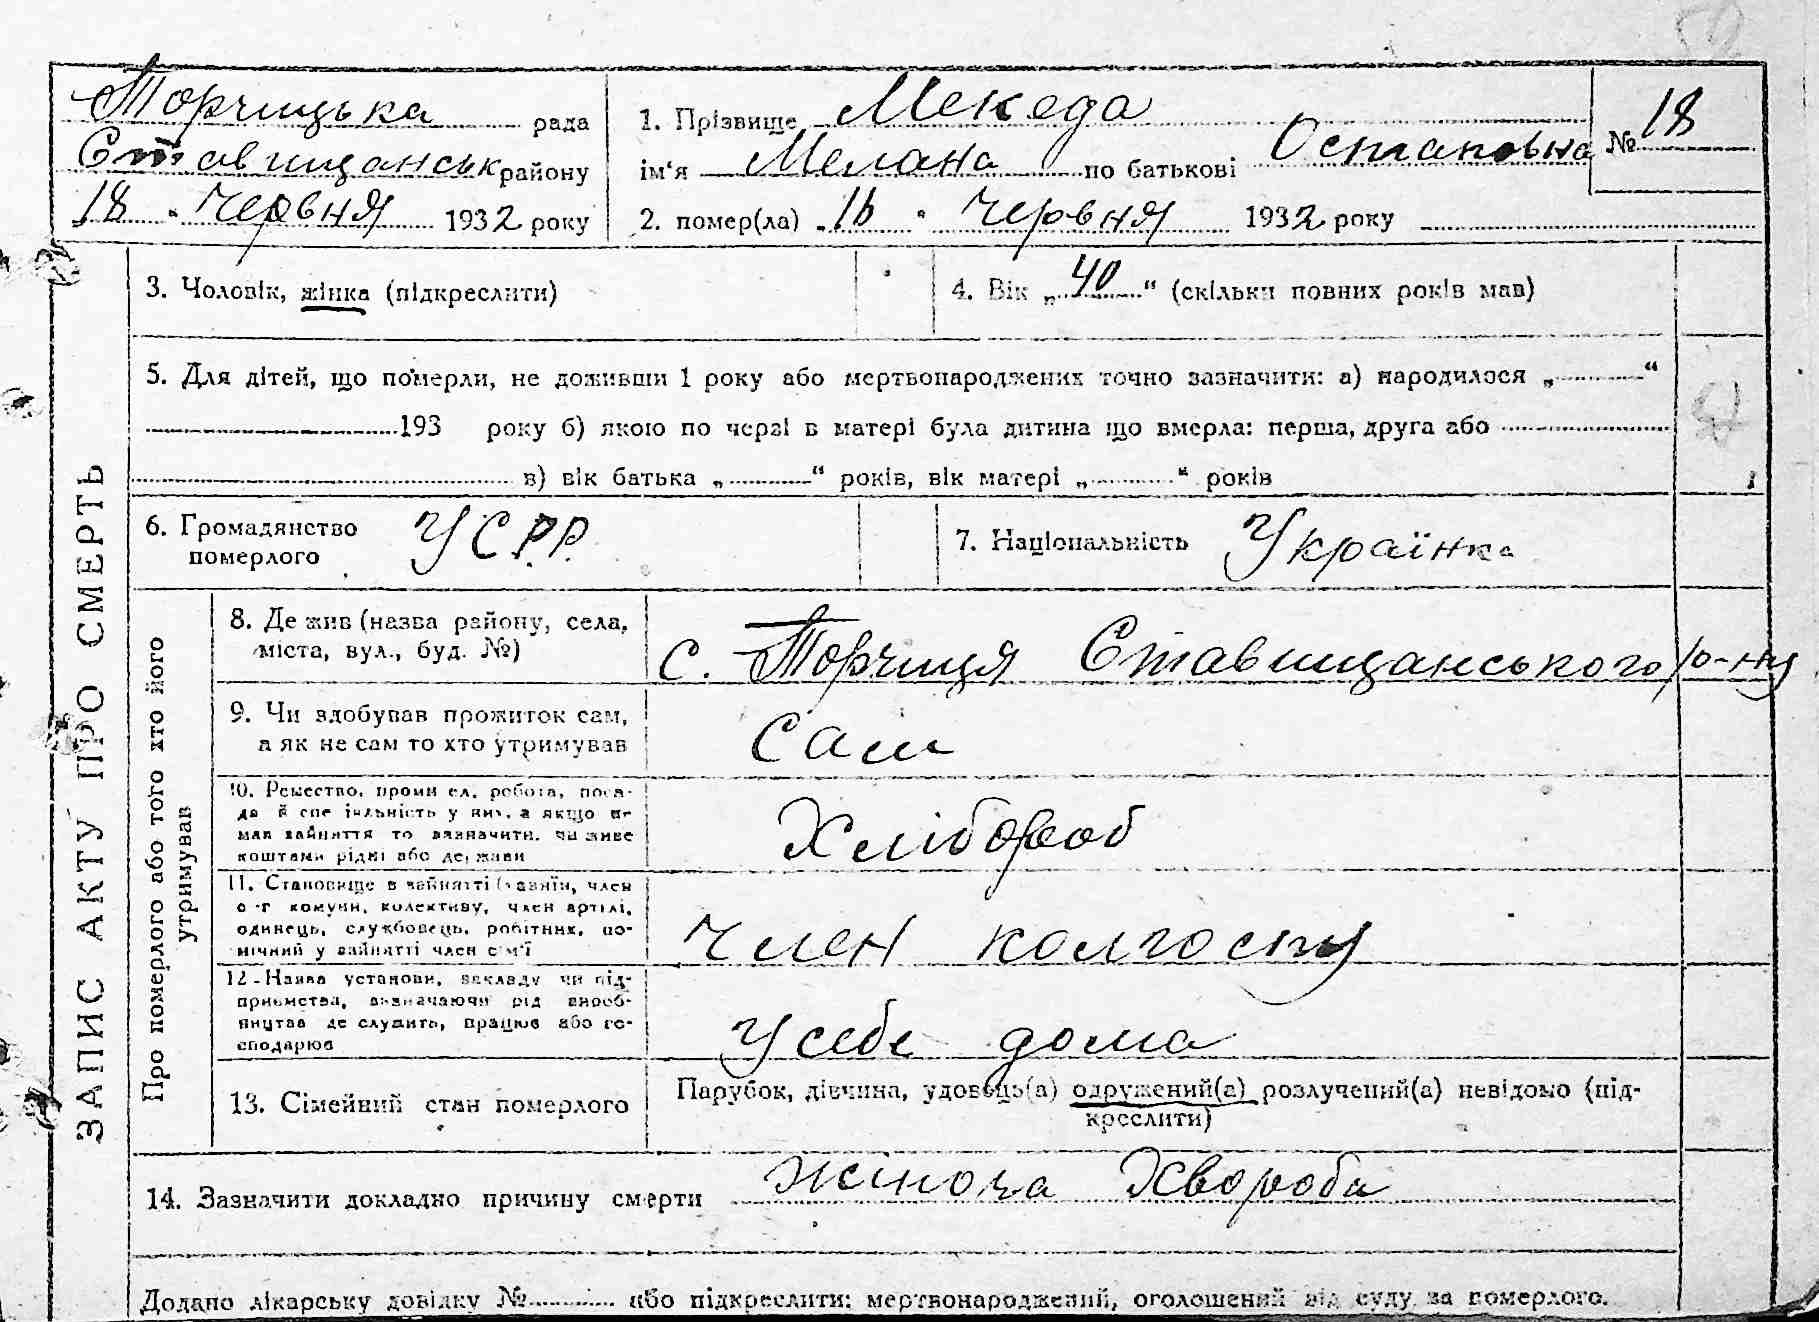 Торчицька рада
Ставищанськ району
18 " Червня 1932 року
1. Прізвище Мекеда
ім'я Мелана по батькові Остаповна
2. помер(ла) 16 " Червня 1932 року
№ 18
3. Чоловік, жінка (підкреслити)
4. Вік „40“ (скільки повних років мав)
5. Для дітей, що померли, не доживши 1 року або мертвонароджених точно зазначити: а) народилося „ “
193 року б) якою по черзі в матері була дитина що вмерла: перша, друга або
в) вік батька „ “ років, вік матері „ “ років
6. Громадянство
померлого
УСРР
7. Національність Українка
ЗАПИС АКТУ ПРО СМЕРТЬ
Про померлого або того хто його
утримував
8. Де жив (назва району, села,
міста, вул., буд. №)
с. Торчиця Ставищанського р-ну
9. Чи здобував прожиток сам,
а як не сам то хто утримував
Сам
10. Ремество, промисел, робота, поса-
да й спеціяльність у них, а якщо не
мав зайняття то зазначити, чи живе
коштами рідні або держави
Хлібороб
11. Становище в зайнятті (хазяїн, член
с-г комуни, колективу, член артілі,
одинець, службовець, робітник, по-
мічний у зайнятті член сім'ї
Член колгоспу
12. Назва установи, закладу чи під-
приємства, визначаючи рід вироб-
ництва де служить, працює або го-
сподарює
У себе дома
13. Сімейний стан померлого
Парубок, дівчина, удовець(а) одружений(а) розлучений(а) невідомо (під-
креслити)
14. Зазначити докладно причину смерти Жіноча Хвороба
Додано лікарську довідку № або підкреслити: мертвонароджений, оголошений від суду за померлого.